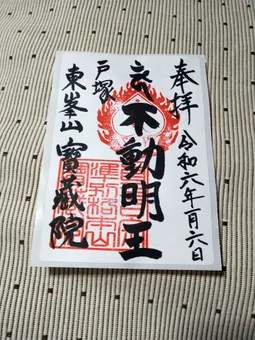 奉拝
令和六年一月六日
不動明王
戸塚
東峯山
寳蔵院